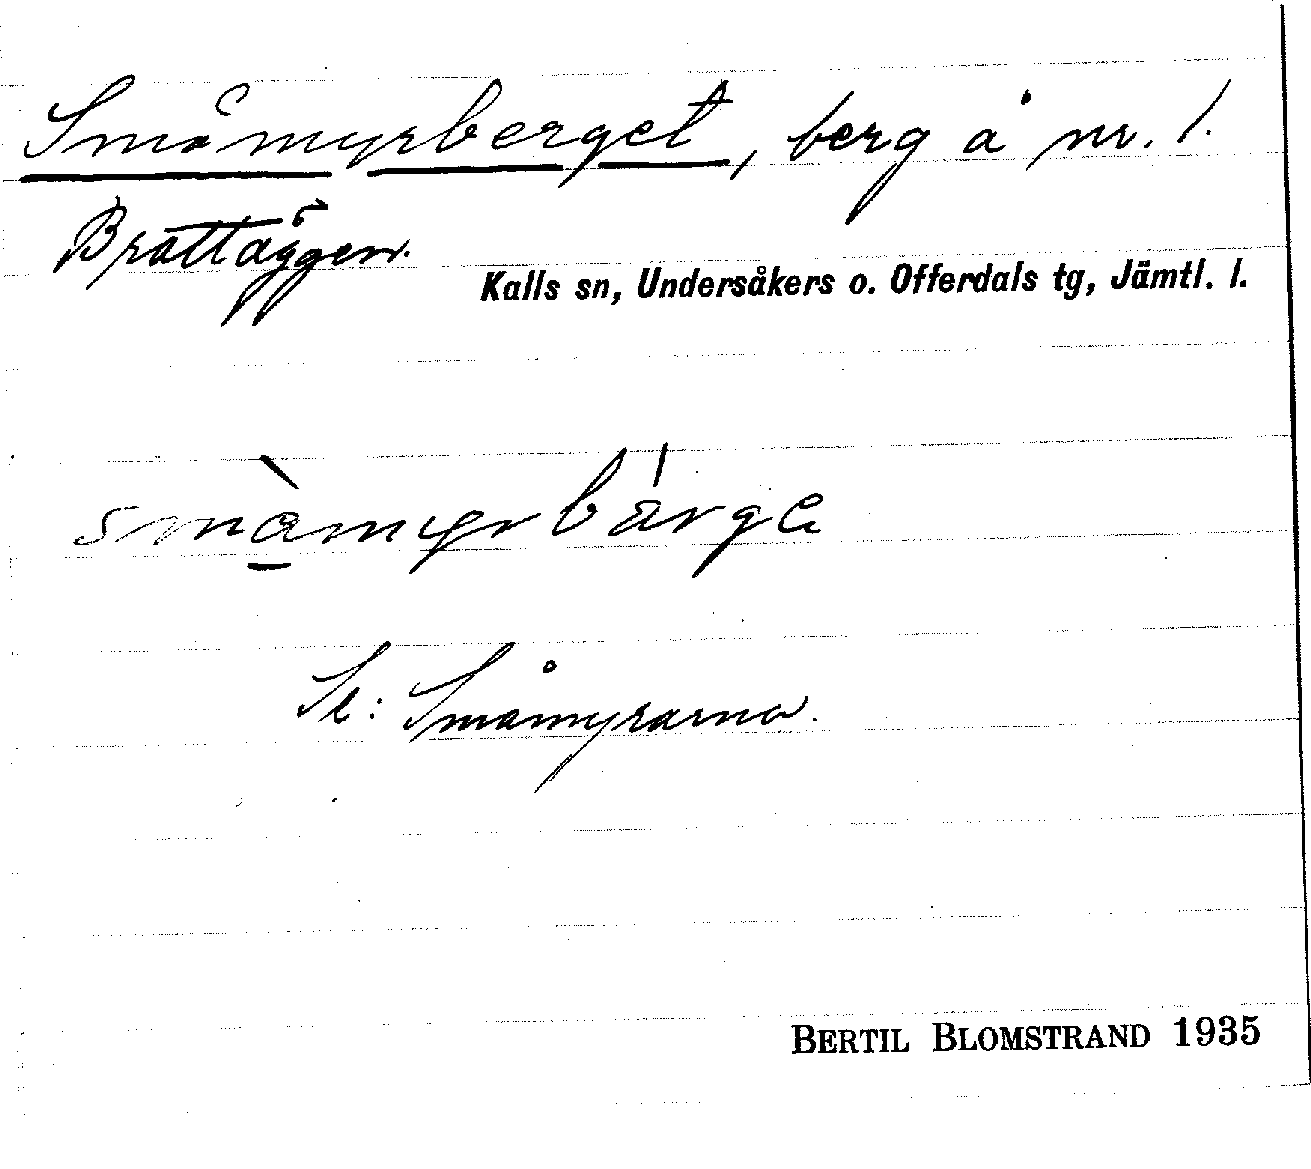 Småmyrberget, berg å nr. 1.
Brattäggen.
Kalls sn, Undersåkers o. Offerdals tg, Jämtl. l.
småmyrbärge
Se: Småmyrarna.
BERTIL BLOMSTRAND 1935